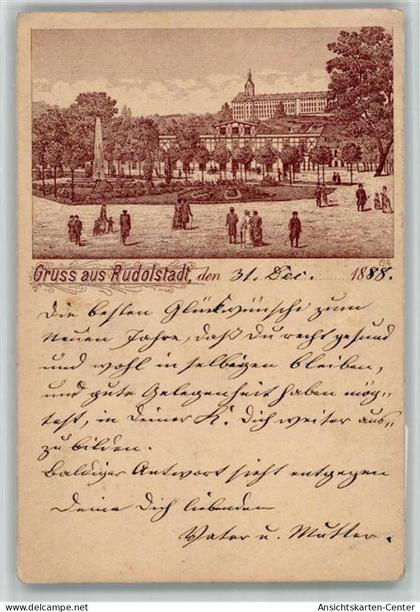 194
Gruss aus Rudolstadt, den 31. Dec. 1888.
Die besten Glückwünsche zum
Neuen Jahre, daß Du recht gesund
und wohl in selbigen bleiben,
und gute Gelegenheit haben mög-
test, in Deiner K. Dich weiter aus-
zu bilden.
Baldiger Antwort sieht entgegen
Deine Dich liebenden
Vater u. Mutter.
www.delcampe.net
posthumus
Ansichtskarten-Center